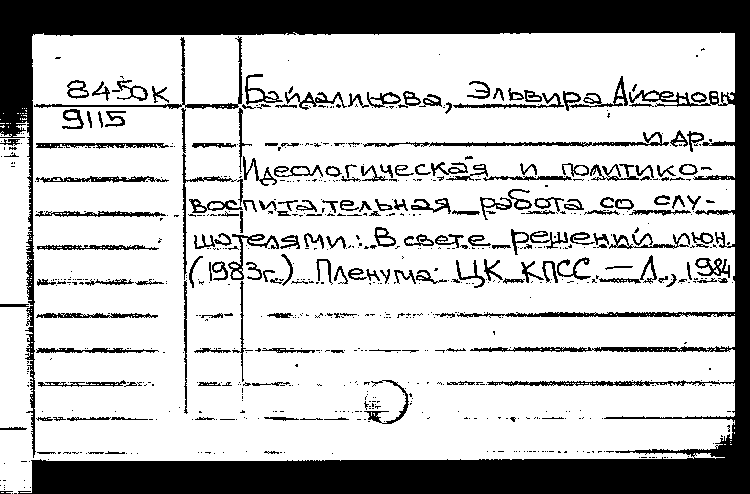 84-50к
9115
Байдалинова, Эльвира Айсеновна
и др.
Идеологическая и политико-
воспитательная работа со слу-
шателями: В свете решений июн.
(1983г.) Пленума ЦК КПСС. — Л., 1984.